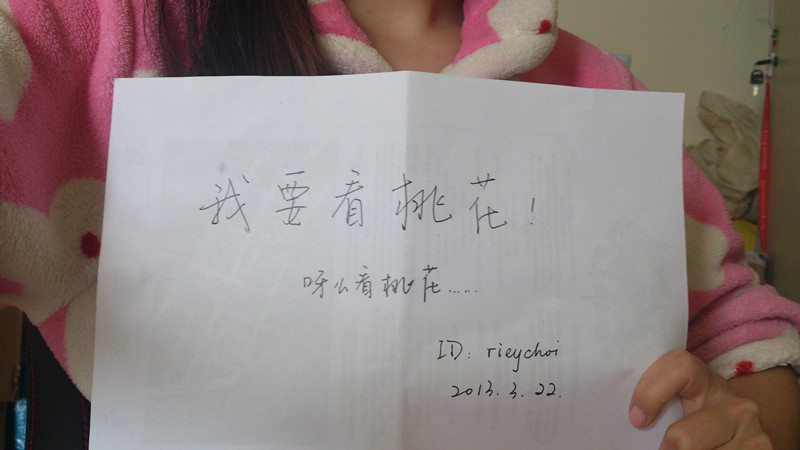 我要看桃花！
呀么看桃花……
ID: rieychoi
2013.3.22.